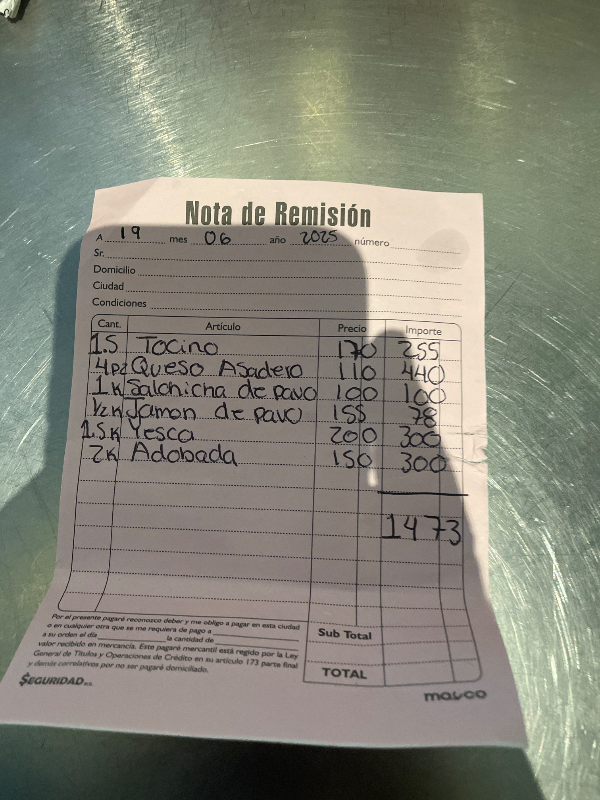 Nota de Remisión
A 19 mes 06 año 2025 número
Sr.
Domicilio
Ciudad
Condiciones
Cant. Artículo Precio Importe
1.5 Tocino 170 255
4pz Queso Asadero 110 440
1K Salchicha de pavo 100 100
1/2K Jamon de pavo 155 78
1.5K Yesca 200 300
2K Adobada 150 300
1473
Por el presente pagaré reconozco deber y me obligo a pagar en esta ciudad
o en cualquier otra que se me requiera de pago a
a su orden el día la cantidad de
valor recibido en mercancía. Este pagaré mercantil está regido por la Ley
General de Títulos y Operaciones de Crédito en su artículo 173 parte final
y demás correlativos por no ser pagaré domiciliado.
Sub Total
TOTAL
SEGURIDAD
masco